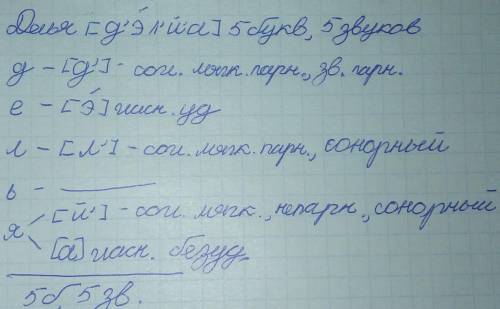 Делья [д'э́л'йа] 5 букв, 5 звуков
д - [д'] - согл. мягк. парн., зв. парн.
е - [э́] гласн. уд
л - [л'] - согл. мягк. парн., сонорный
ь - ―
я [й'] - согл. мягк., непарн., сонорный
[а] гласн. безуд.
5б, 5 зв.